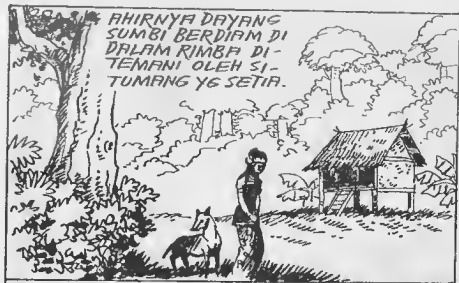 AHIRNYA DAYANG
SUMBI BERDIAM DI
DALAM RIMBA DI-
TEMANI OLEH SI-
TUMANG YG SETIA.